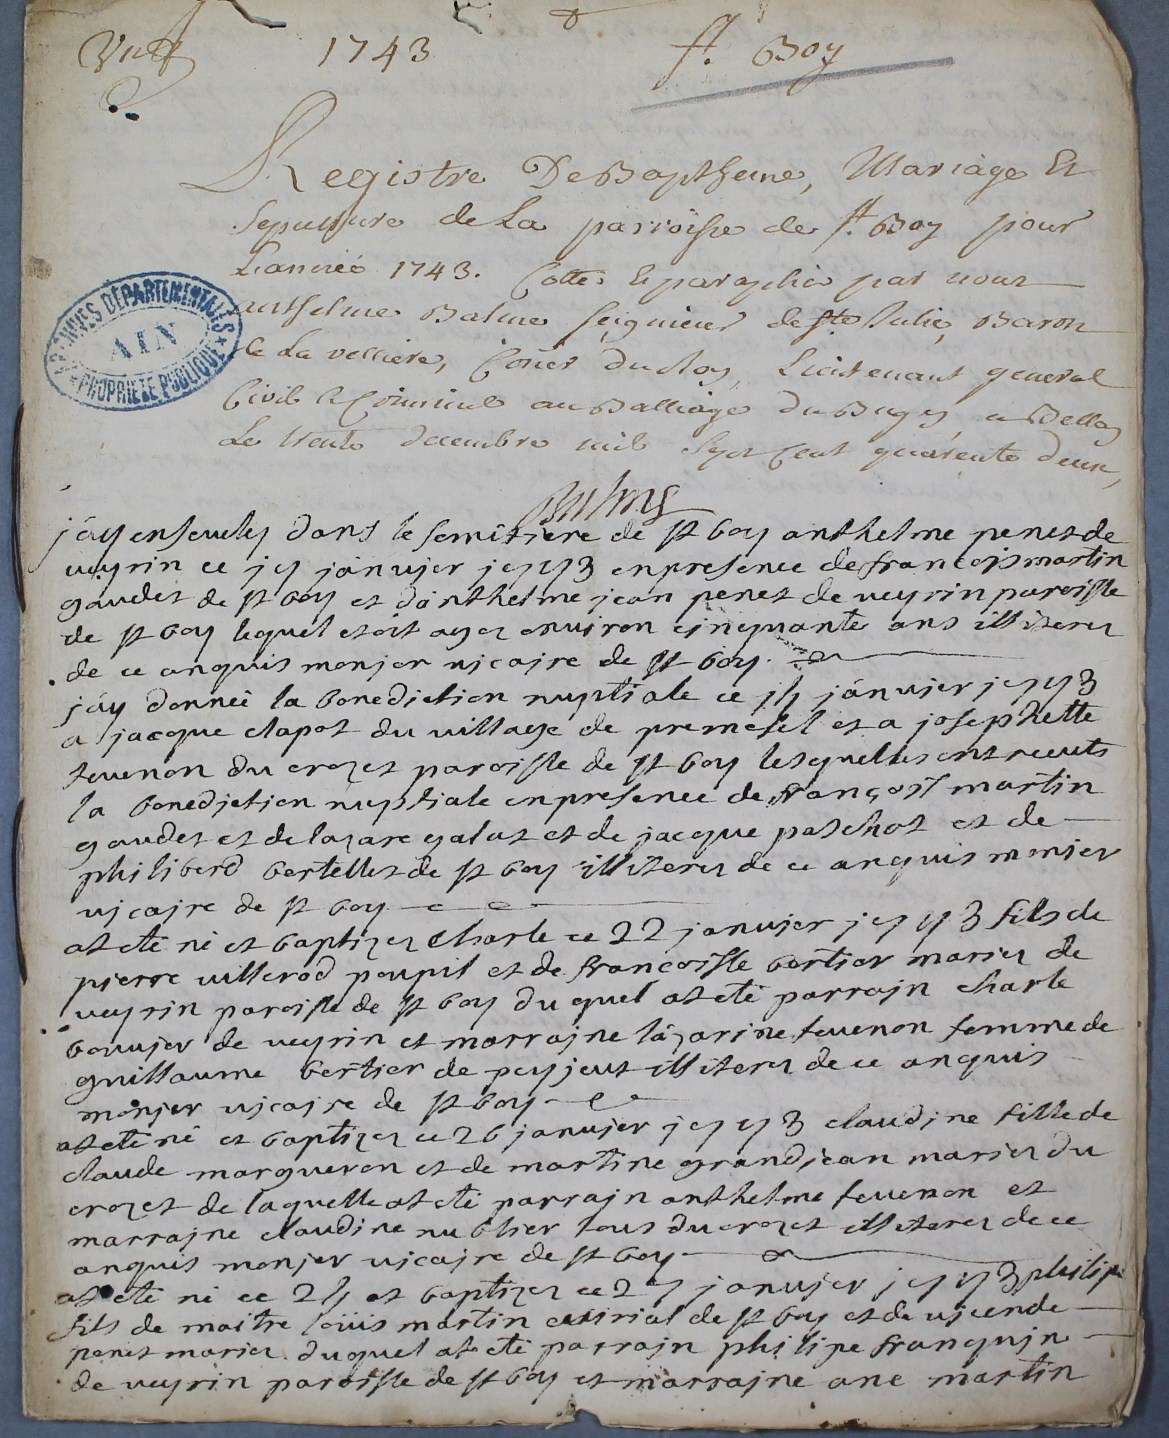 1743 St. Boy
Registre De Baptheme, Mariage Et
Sepulture de La parroisse de St. Boy pour
L'année 1743. Cotté & paraphé par nous
anthelme Balme seigneur de Ste Julie, Baron
de La velliere, Coñer du Roy, Lieutenant general
Civil & Criminel au Balliage du Bugey a Belley
Le trente decembre mil sept cent quarente deux,
Balme
ARCHIVES DÉPARTEMENTALES
AIN
PROPRIÉTÉ PUBLIQUE
j'ay ensevely dans le semitiere de st boy anthelme penet de
veyrin ce janvjer enpresence de francojs martin
gaudet de st boy et d'anthelme jean penet de veyrin paroisse
de st boy lequel etoit agez environ cjnquante ans illiterez
de ce anquis monjer vjcajre de st boy
j'ay donneé la benediction nuptiale ce janvjer
a jacque clapot du village de premesel et a josephette
tevenon du crozet paroisse de st boy lesquelles ont receuts
la benedjction nuptiale enpresence de françojs martin
gaudet et de lazare galat et de jacque patchot et de
philiberd bertellet de st boy illiterez de ce anquis monjer
vjcajre de st boy
at eté né et baptizez charle ce 22 janvjer fils de
pjerre villerod poupil et de francoisse bertier mariez de
veyrin paroisse de st boy duquel at eté parrajn charle
bouvjer de veyrin et marrajne lazarine tevenon femme de
guillaume bertier de illiterez de ce anquis
monjer vjcajre de st boy
at eté né et baptizez ce 26 janvjer claudjne fille de
claude margueron et de martine grandjean mariez du
crozet de laquelle at eté parrajn anthelme tevenon et
marrajne claudine tous du crozet illiterez de ce
anquis monjer vjcajre de st boy
at eté né ce et baptizez ce janvjer philipe
fils de maitre loüis martin de st boy et de vjcende
penet mariez duquel at eté parrajn philipe franqujn
de veyrin paroisse de st boy et marrajne ane martin